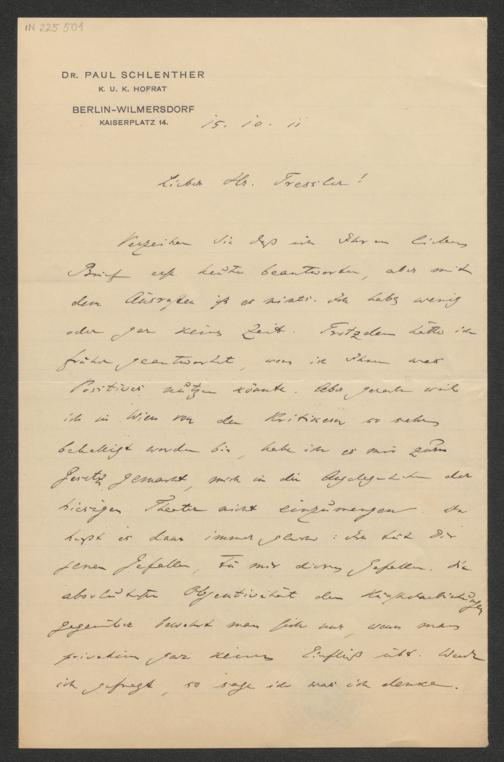 IN 225 501
DR. PAUL SCHLENTHER
K. U. K. HOFRAT
BERLIN-WILMERSDORF
KAISERPLATZ 14.
15. 10. 11
Lieber Hr. Tressler!
Verzeihen Sie daß ich Ihren lieben
Brief erst heute beantworte, aber mit
dem Ausruhen ist es nichts. Ich habe wenig
oder gar keine Zeit. Trotzdem hätte ich
früher geantwortet, wenn ich Ihnen was
Positives nützen könnte. Aber gerade weil
ich in Wien von den Kritikern so sehr
behelligt worden bin, habe ich es mir zum
Gesetz gemacht, mich in die Angelegenheiten der
hiesigen Theater nicht einzumengen. Da
heißt es dann immer gleich: Ich tue Dir
jenen Gefallen, tu mir diesen Gefallen. Die
absoluteste Objektivität den
gegenüber bewahrt man sich nur, wenn man
privatim gar keinen Einfluß übt. Werde
ich gefragt, so sage ich was ich denke.